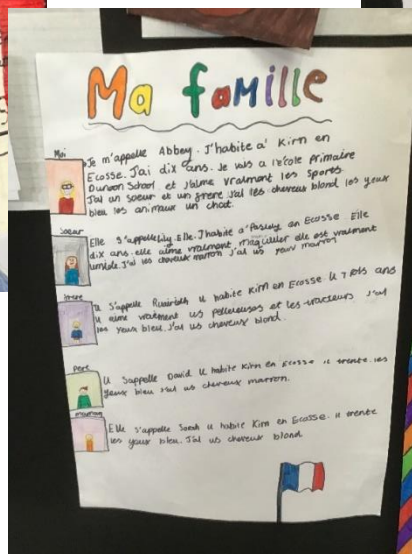 Ma famille
Moi
Je m'appelle Abbey. J'habite a' Kirn en
Ecosse. J'ai dix ans. Je vais a l'ecole primaire
Dunoon School et j'aime vraiment les sports.
J'ai un soeur et un frere J'ai les cheveux blond les yeux
bleu les animaux un chat.
soeur
Elle s'appelle Lily. Elle J'habite a' Pasley en Ecosse. Elle
dix ans. elle aime vraiment. elle est vraiment
J'ai les cheveux marron J'ai us yeux marron
frere
u s'appelle u habite Kirn en Ecosse. U ans
u aime vraiment us et les J'ai
les yeux bleu. J'ai us cheveux blond.
pere
U s'appelle David U habite Kirn en Ecosse il trente. les
yeux bleu J'ai us cheveux marron.
Elle s'appelle Sarah u habite Kirn en Ecosse. il trente
les yeux bleu. J'ai us cheveux blond